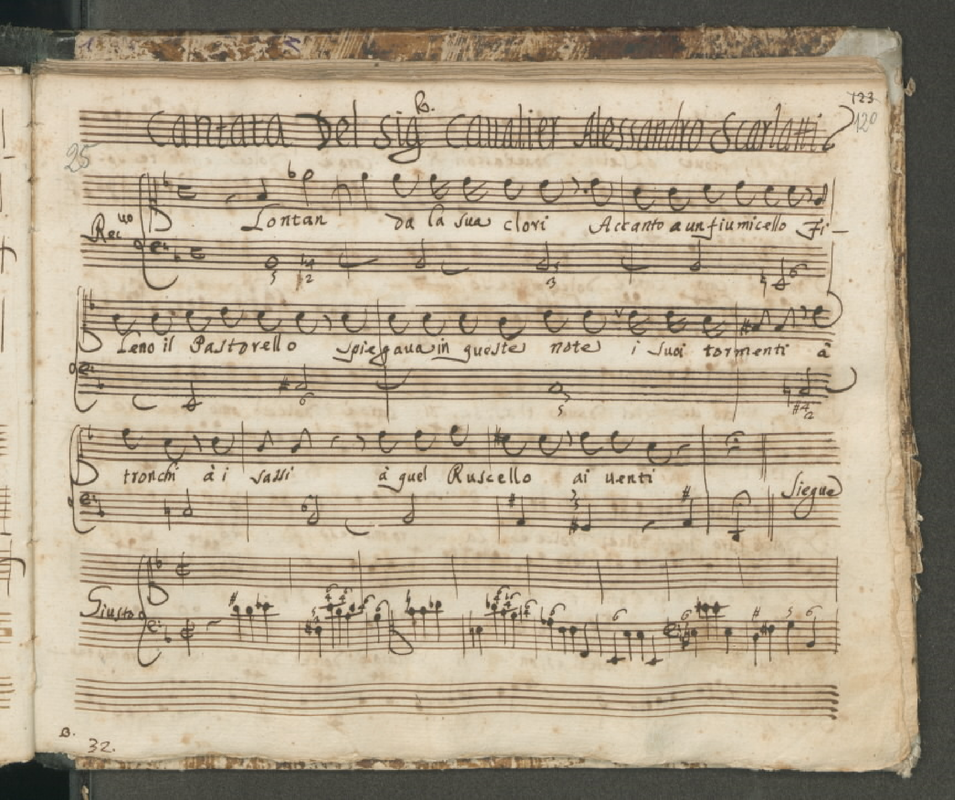 123
120
Cantata Del Sig.R. Caualier Alessandro Scarlatti
25
Rec.uo Lontan da la sua clori Accanto a un fiumicello Fi-
leno il Pastorello spiegaua in queste note i suoi tormenti à
tronchi à i sassi à quel Ruscello ai uenti
Siegue
Giusto
B.
32.